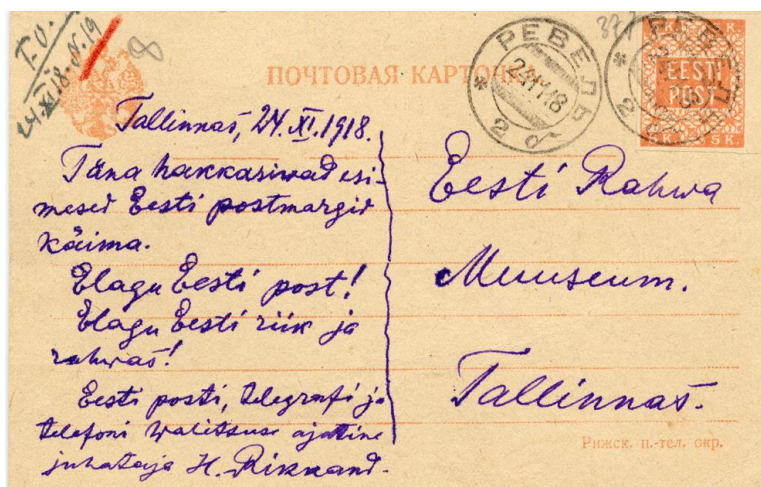 T. O.
24.XI.18. N. 19
8
377
ПОЧТОВАЯ КАРТОЧКА
РЕВЕЛЬ
24 XI 18
2
РЕВЕЛЬ
2
EESTI
POST
5 K.
Tallinnas, 24. XI. 1918.
Täna hakkasiwad esi-
mesed Eesti postmargid
käima.
Elagu Eesti post!
Elagu Eesti riik ja
rahwas!
Eesti posti, telegrafi ja
telefoni walitsuse ajutine
juhataja H. Rikkand.
Eesti Rahwa
Muuseum.
Tallinnas.
Рижск. п.-тел. окр.